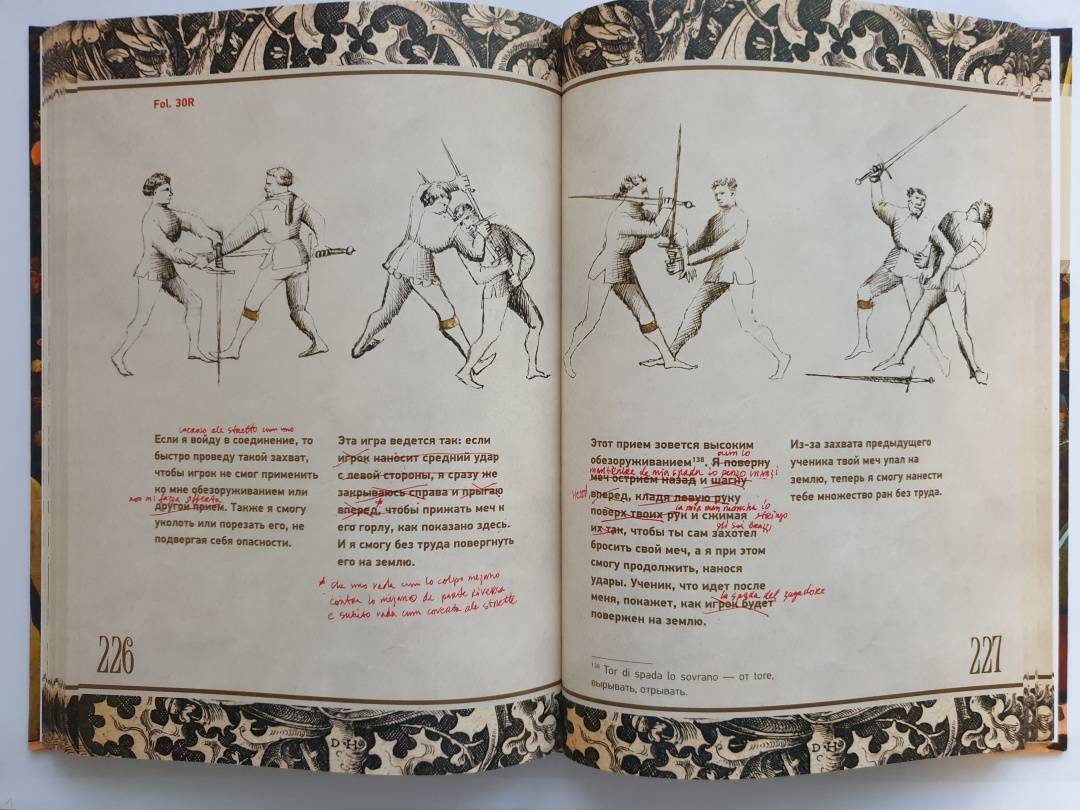 Fol. 30R
Если я войду в соединение, то
быстро проведу такой захват,
чтобы игрок не смог применить
ко мне обезоруживанием или
non mi faza offesa
другой прием. Также я смогу
уколоть или порезать его, не
подвергая себя опасности.
Эта игра ведется так: если
игрок наносит средний удар
с левой стороны, я сразу же
закрываюсь справа и прыгаю
вперед,* чтобы прижать меч к
его горлу, как показано здесь.
И я смогу без труда повергнуть
его на землю.
* che uno vada cum lo colpo mezano
contra lo mezano de parte riversa
e subito vada cum coverta ale strette
226
Этот прием зовется высоким
обезоруживанием¹³⁸. Я поверну
cum lo
mantenire de mia spada io penzo inanzi
меч острием назад и шагну
вперед, кладя левую руку
la mia man mancha io
поверх твоих рук и сжимая
stringo
gli soi brazzi
их так, чтобы ты сам захотел
бросить свой меч, а я при этом
смогу продолжить, нанося
удары. Ученик, что идет после
la spada del zugadore
меня, покажет, как игрок будет
повержен на землю.
¹³⁸ Tor di spada lo sovrano — от tore,
вырывать, отрывать.
Из-за захвата предыдущего
ученика твой меч упал на
землю, теперь я смогу нанести
тебе множество ран без труда.
227
D H
C
D H
C